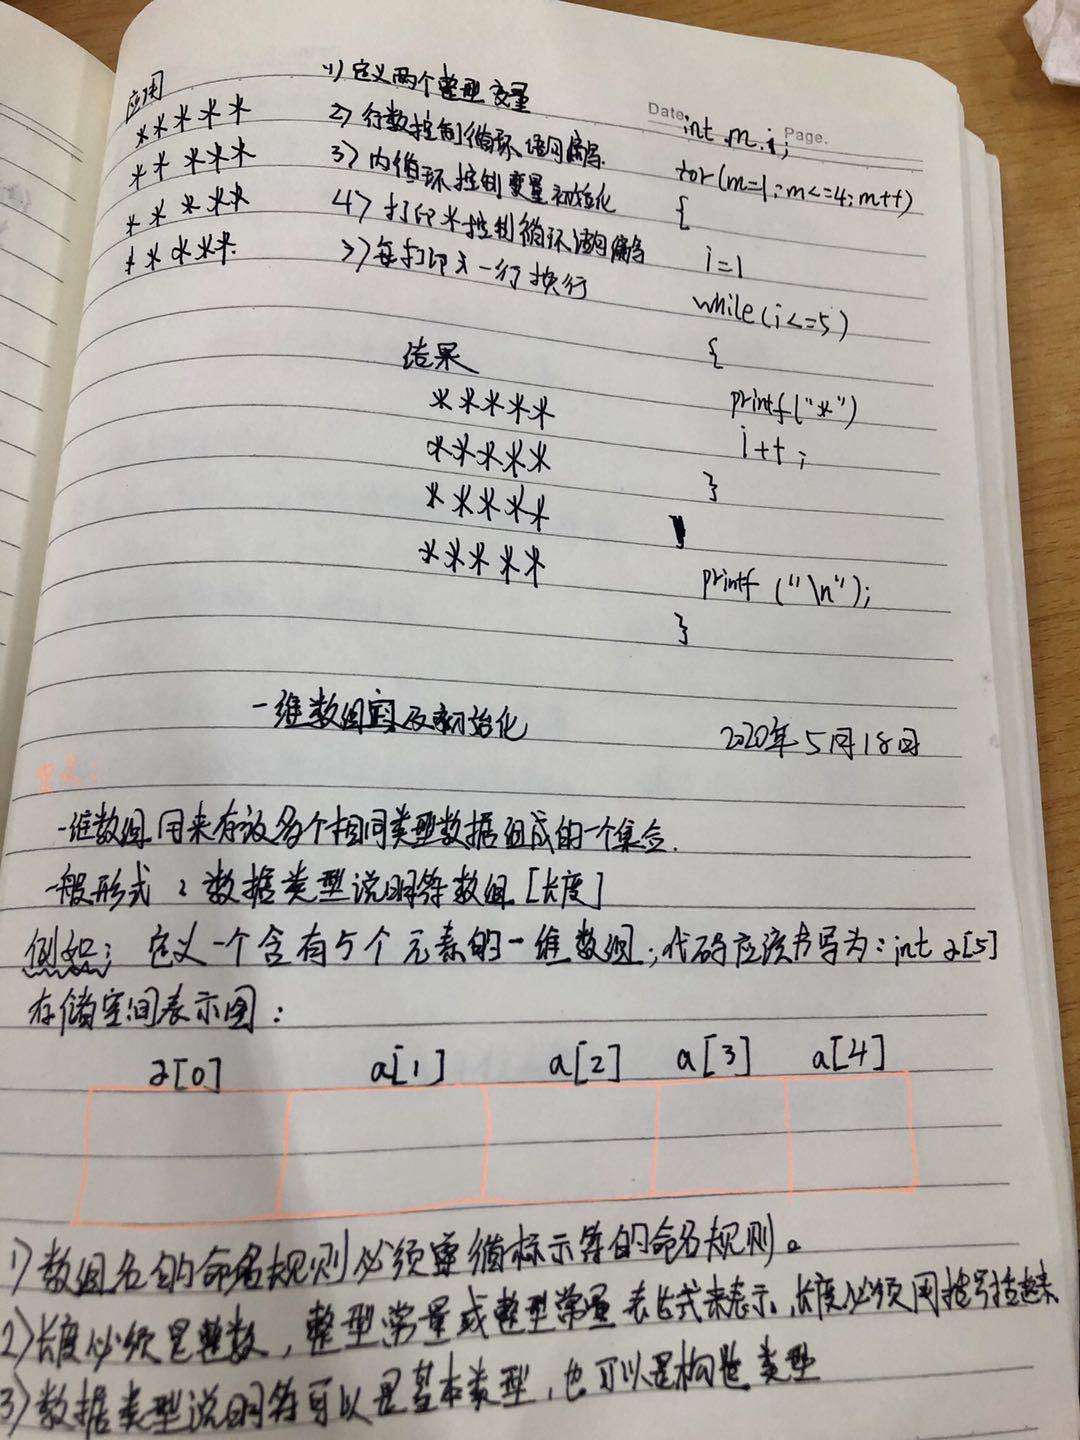 应用
* * * * *
* * * * *
* * * * *
* * * * *
1) 定义两个整型变量
2) 行数控制循环语句编写.
3) 内循环控制变量初始化
4) 打印*控制循环语句编写
5) 每打印完一行换行
结果
*****
*****
*****
*****
Date
Page.
int m.i;
for(m=1;m<=4;m++)
{
i=1
while(i<=5)
{
printf("*")
i++;
}
printf ("\n");
}
一维数组及初始化
2020年5月18日
一维数组用来存放多个相同类型数据组成的一个集合.
一般形式:数据类型说明符数组[长度]
例如:定义一个含有5个元素的一维数组;代码应该书写为:int a[5]
存储空间表示图:
a[0] a[1] a[2] a[3] a[4]
1)数组名的命名规则必须遵循标示符的命名规则。
2)长度必须是整数,整型常量或整型常量表达式来表示,长度必须用括号括起来
3)数据类型说明符可以是基本类型,也可以是构造类型